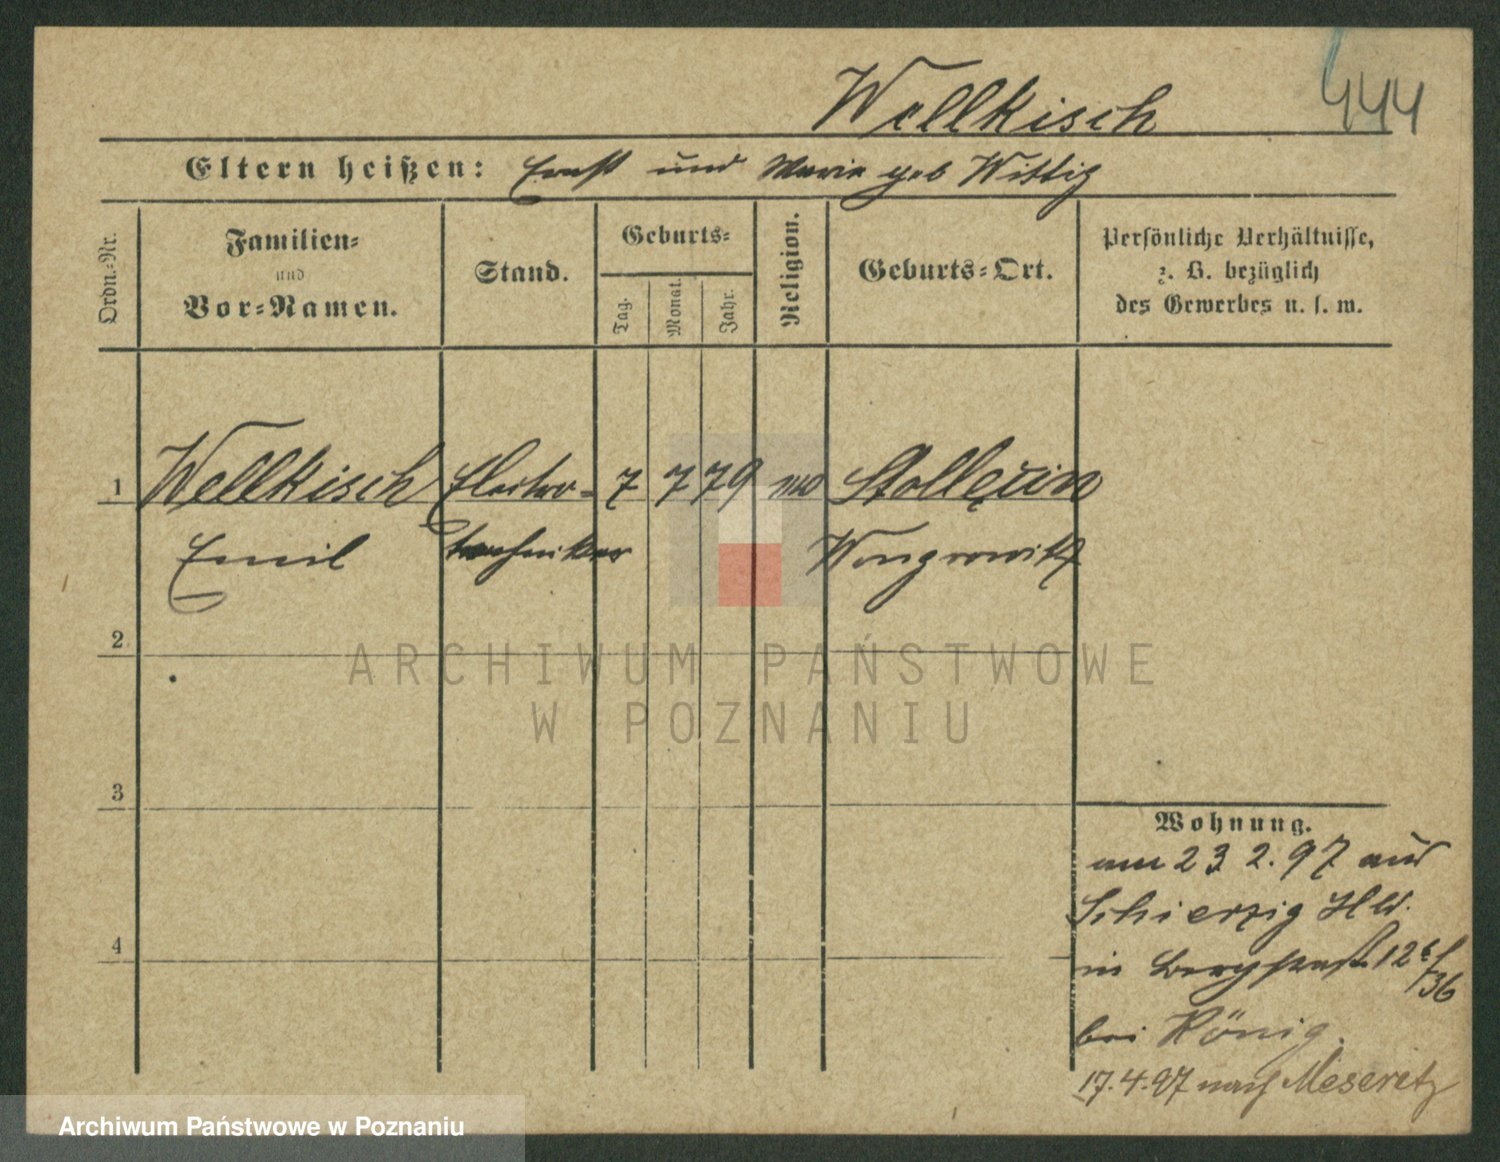 Wellkisch
444
Eltern heißen: Ernst und Marie geb Wittig
Ordn.-Nr.
Familien-
und
Vor-Namen.
Stand.
Geburts-
Tag.
Monat.
Jahr.
Religion.
Geburts-Ort.
Persönliche Verhältnisse,
z. B. bezüglich
des Gewerbes u. s. w.
1 Wellkisch Electro- 7 7 79
Emil techniker Wongrowitz
2
3
4
Wohnung.
am 23 2. 97 aus
Schierzig Hld.
in Bergstraß. 12b/36
bei König.
17.4.97 nach Meseritz
ARCHIWUM PAŃSTWOWE
W POZNANIU
Archiwum Państwowe w Poznaniu